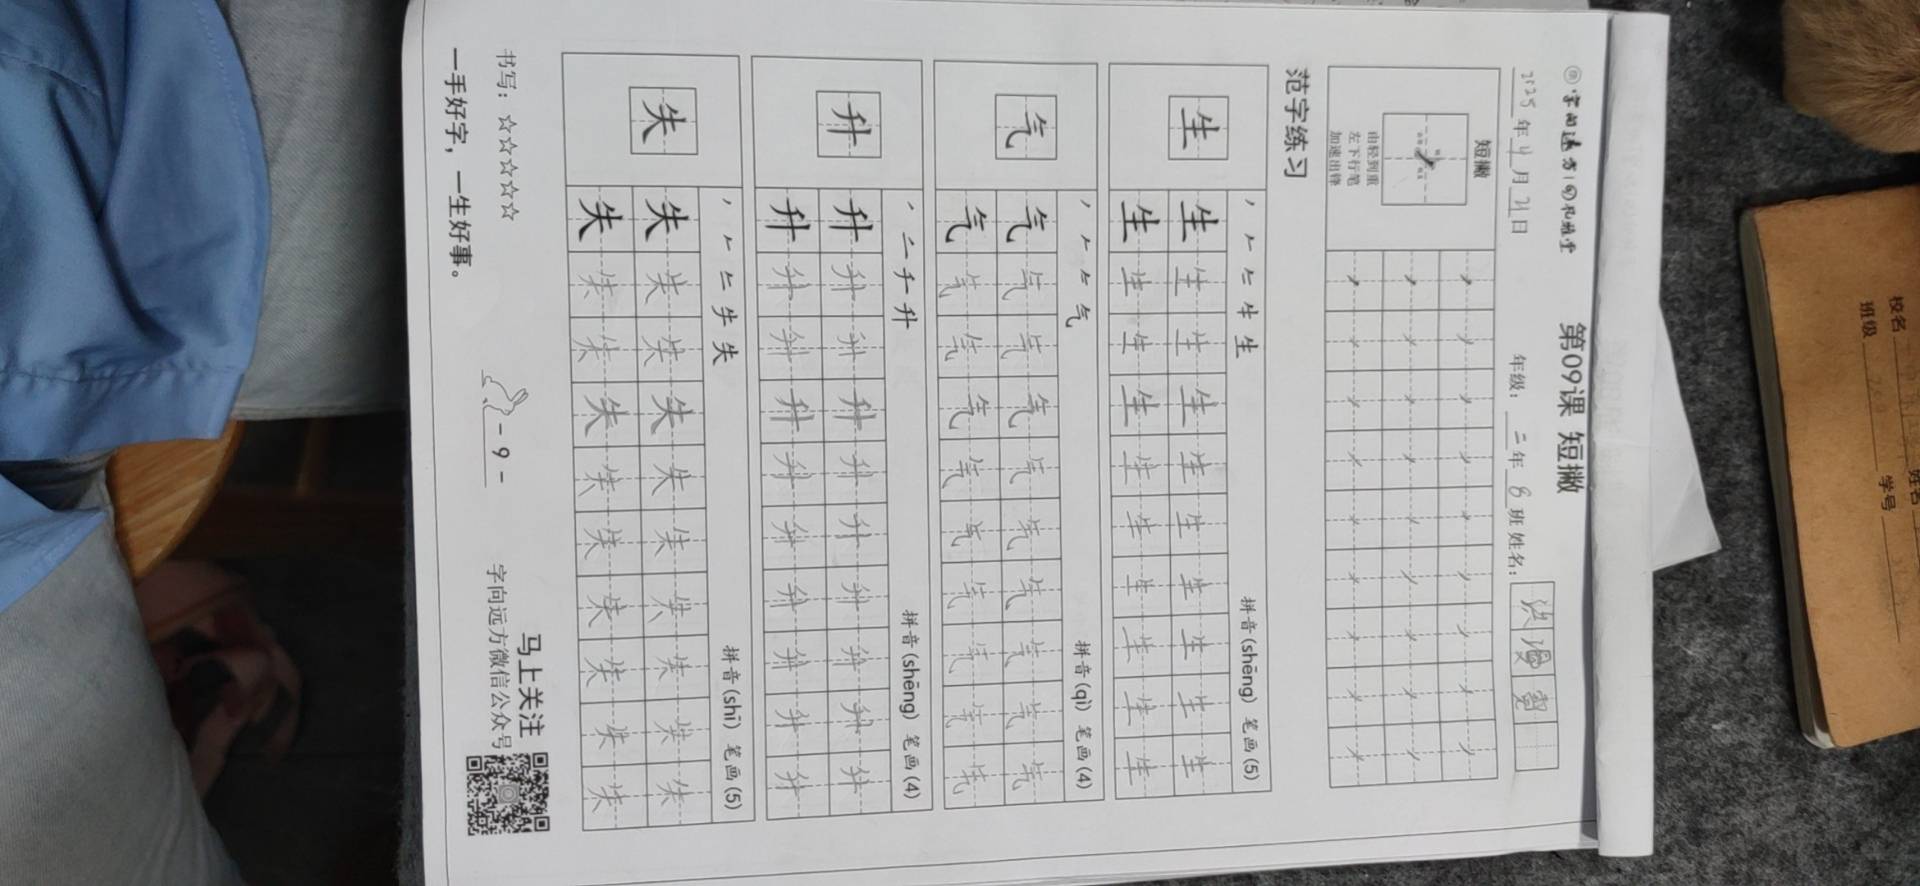 第09课 短撇
2025年4月21日 年级：二年8班 姓名：洪
短撇
由轻到重
左下行笔
加速出锋
范字练习
生 丿 𠂉 生 拼音(shēng) 笔画(5)
生 生 生 生 生 生 生 生 生 生
生 生 生 生 生 生 生 生 生 生
气 丿 𠂉 气 拼音(qì) 笔画(4)
气 气 气 气 气 气 气 气 气 气
气 气 气 气 气 气 气 气 气 气
升 升 拼音(shēng) 笔画(4)
升 升 升 升 升 升 升 升 升 升
升 升 升 升 升 升 升 升 升 升
失 丿 𠂉 失 拼音(shī) 笔画(5)
失 失 失 失 失 失 失 失 失 失
失 失 失 失 失 失 失 失 失 失
书写：☆☆☆☆☆
马上关注
字向远方微信公众号
一手好字，一生好事。
- 9 -
校名
班级
学号
姓名